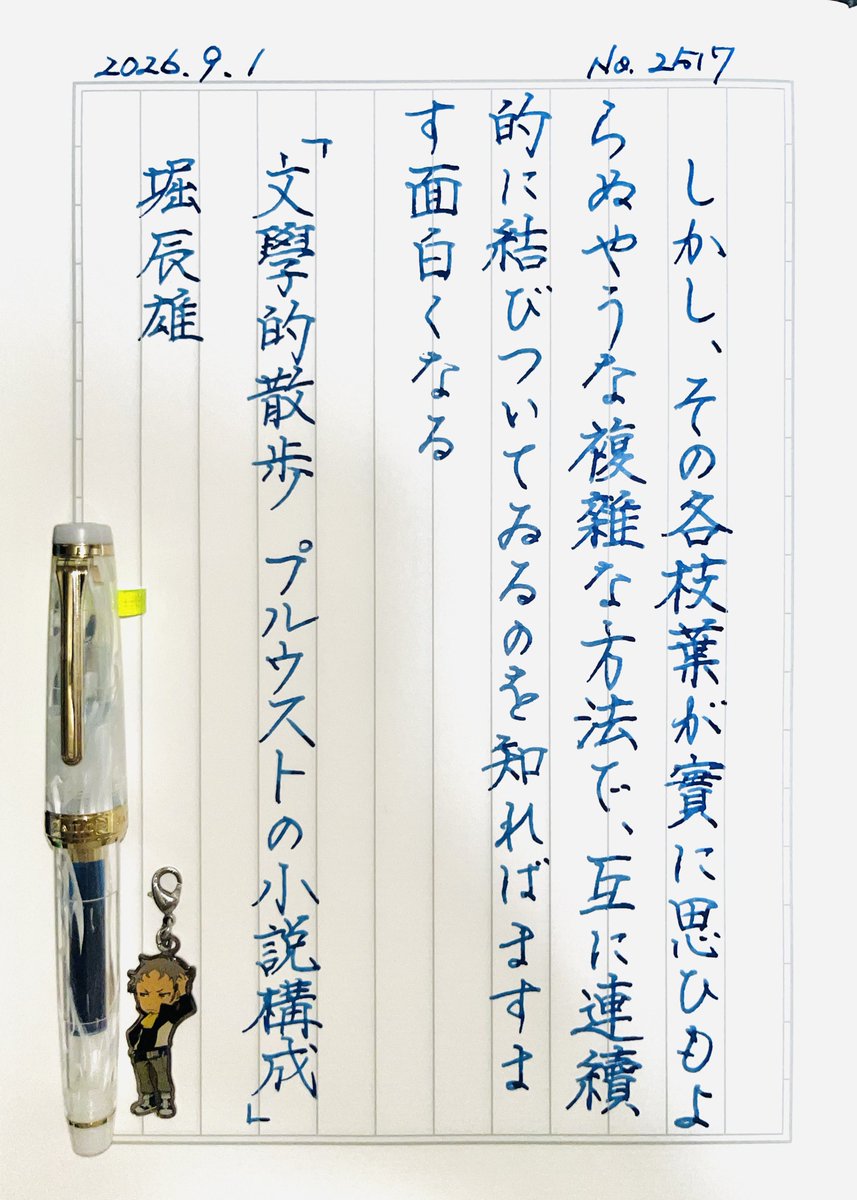 2026.9.1
No. 2517
しかし、その各枝葉が實に思ひもよ
らぬやうな複雜な方法で、互に連續
的に結びついてゐるのを知ればますま
す面白くなる
「文學的散歩 プルウストの小説構成」
堀辰雄